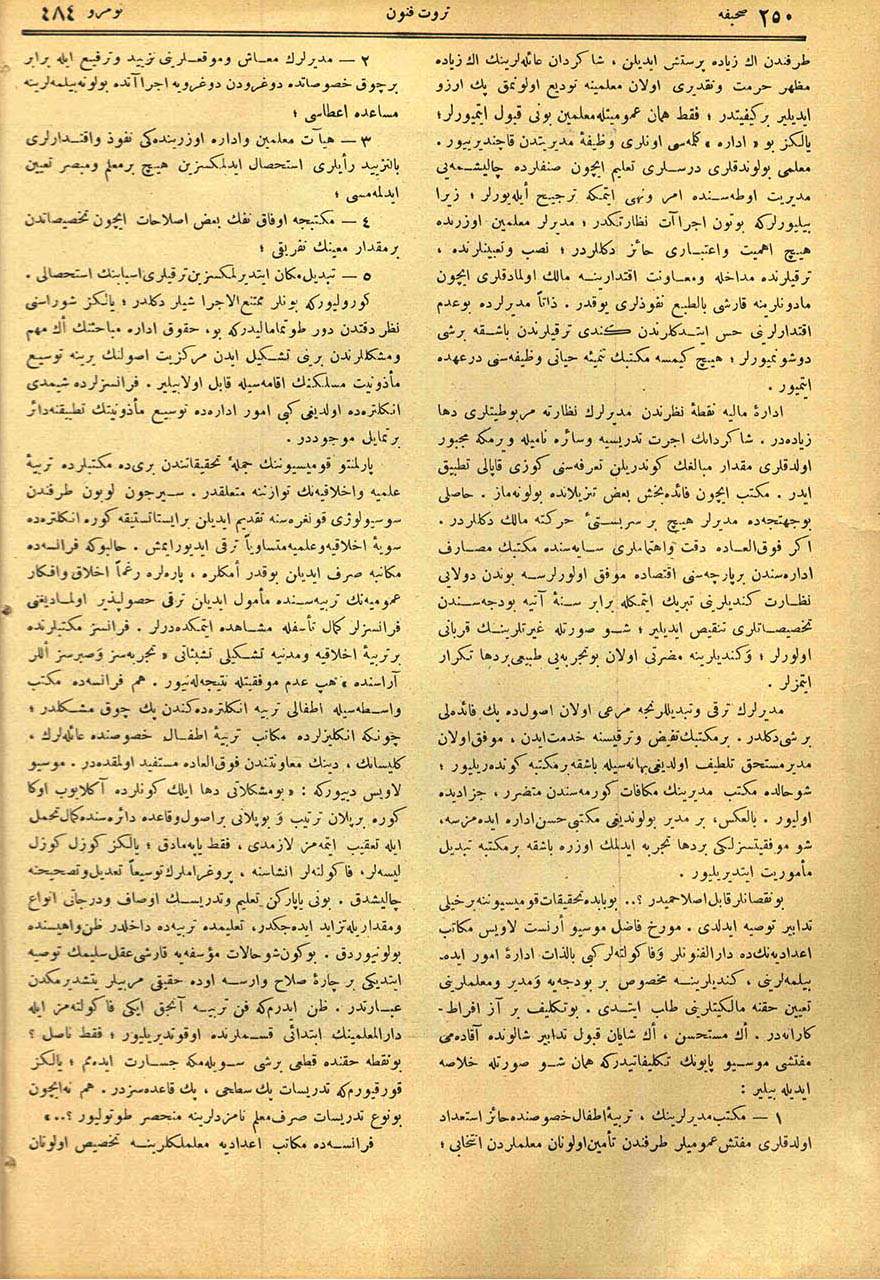 ٢٥٠ صحيفه
ثروت فنون
نومرو ٤٨٤
طرفندن اك زياده پرستش ايديلن ، شاكردان عائله‌لرينك اك زياده
مظهر حرمت وتقديرى اولان معلمينه توديع اولونمق پك ارزو
ايديلير بركيفيتدر ؛ فقط همان عموميتله معلمين بونى قبول ايتميورلر؛
يالكز بو « اداره » كلمه‌سى اونلرى وظيفهٔ مديريتدن قاچنديريور .
معلمى بولوندقلرى درسلرى تعليم ايچون صنفلرده چاليشمه‌يى
مديريت اوطه‌سنده امر ونهى ايتمكه ترجيح أيله‌يورلر ؛ زيرا
بيليورلركه بوتون اجراآت نظارتكدر ؛ مديرلر معلمين اوزرنده
هيچ اهميت واعتبارى حائز دكللردر ؛ نصب وتعيينلرنده ،
ترقيلرنده مداخله ومعاونت اقتدارينه مالك اولمادقلرى ايچون
مادونلرينه قارشى بالطبع نفوذلرى يوقدر . ذاتاً مديرلرده بوعدم
اقتدارلرينى حس ايتدكلرندن كندى ترقيلرندن باشقه برشى
دوشونميورلر ؛ هيچ كيمسه مكتبك تنميهٔ حياتى وظيفه‌سنى درعهده
ايتميور .
ادارهٔ ماليه نقطهٔ نظرندن مديرلرك نظارته مربوطيتلرى دها
زياده‌در . شاكردانك اجرت تدريسيه وسائره ناميله ويرمكه مجبور
اولدقلرى مقدار مبالغك كوندريلن تعرفه‌سنى كوزى قاپالى تطبيق
ايدر . مكتب ايچون فائده‌بخش بعض تنزيلاتده بولونه‌ماز . حاصلى
بوجهتجه‌ده مديرلر هيچ بر سربستىٔ حركته مالك دكللردر .
اكر فوق‌العاده دقت واهتماملرى سايه‌سنده مكتبك مصارف
اداره‌سندن برپارچه‌سنى اقتصاده موفق اولورلرسه بوندن دولايى
نظارت كنديلرينى تبريك ايتمكله برابر سنهٔ آتيه بودجه‌سندن
تخصيصاتلرى تنقيص ايديلير ؛ شو صورتله غيرتلرينك قربانى
اولورلر ؛ وكنديلرينه مضرتى اولان بوتجربه‌يى طبيعى بردها تكرار
ايتمزلر .
مديرلرك ترقى وتبديللرنجه مرعى اولان اصول‌ده پك فائده‌لى
برشى دكلدر . برمكتبك تفيض وترقيسنه خدمت ايدن ، موفق اولان
مدير مستحق تلطيف اولديغى بهانه‌سيله باشقه برمكتبه كونده‌ريليور ؛
شو حالده مكتب مديرينك مكافات كورمه‌سندن متضرر ، جزاديده
اوليور . بالعكس، بر مدير بولونديغى مكتبى حسن اداره ايده‌مزسه،
شو موفقيتسزلكى بردها تجربه ايدلمك اوزره باشقه برمكتبه تبديل
مأموريت ايتديريليور .
بونقصانلر قابل اصلاحميدر ؟.. بوبابده تحقيقات قوميسيوننه برخيلى
تدابير توصيه ايدلدى . مورخ فاضل موسيو أرنست لاويس مكاتب
اعداديه‌نك‌ده دارالفنونلر وفاكولته‌لر كبى بالذات ادارهٔ امور ايده‌
بيلمه‌لرينى ، كنديلرينه مخصوص بر بودجه‌يه ومدير ومعلملرينى
تعيين حقنه مالكيتلرينى طلب ايتدى . بوتكليف بر آز افراط-
كارانه‌در . أك مستحسن ، أك شايان قبول تدابير شالونده آقاده‌مى
مفتشى موسيو پايونك تكليفاتيدركه همان شو صورتله خلاصه
ايديله بيلير :
١ — مكتب مديرلرينك ، تربيهٔ اطفال خصوصنده حائز استعداد
اولدقلرى مفتش عموميلر طرفندن تأمين اولونان معلملردن انتخابى ؛
٢ — مديرلرك معاش وموقعلرينى تزييد وترفيع ايله برابر
برچوق خصوصاتده دوغرودن دوغرويه اجراآتده بولونه‌بيلمه‌لرينه
مساعده اعطاسى ؛
٣ — هيأت معلمين واداره اوزرينده‌كى نفوذ واقتدارلرى
بالتزييد رأيلرى استحصال ايدلمكسزين هيچ برمعلم ومبصر تعيين
ايدلمه‌مسى ؛
٤ — مكتبجه اوفاق تفك بعض اصلاحات ايچون تخصيصاتدن
برمقدار معينك تفريقى ؛
٥ — تبديل مكان ايتديرلمكسزين ترقيلرى اسبابنك استحصالى .
كورولیوركه بونلر ممتنع‌الاجرا شيلر دكلدر ؛ يالكز شوراسنى
نظر دقتدن دور طوتماماليدركه بو، حقوق اداره مباحثنك أك مهم
ومشكللرندن برينى تشكيل ايدن مركزيت اصولنك يرينه توسيع
مأذونيت مسلكنك اقامه‌سيله قابل اولابيلير . فرانسزلرده شيمدى
انكلتره‌ده اولديغى كبى امور اداره‌ده توسيع مأذونيتك تطبيقنه‌دائر
برتمايل موجوددر .
پارلمنتو قوميسيوننك جملهٔ تحقيقاتندن برى‌ده مكتبلرده تربيهٔ
علميه واخلاقيه‌نك توازننه متعلقدر . سيرجون لوبون طرفندن
سوسيولوژى قونغره‌سنه تقديم ايديلن برايستاتستيقه كوره انكلتره‌ده
سويهٔ اخلاقيه وعلميه متساوياً ترقى ايديورايمش . حالبوكه فرانسه‌ده
مكاتبه صرف ايديلن بوقدر أمكلره ، پاره‌لره رغماً اخلاق وافكار
عموميه‌نك تربيه‌سنده مأمول ايديلن ترقى حصولپذير اولماديغنى
فرانسزلر كمال تأسفله مشاهده ايتمكده‌درلر . فرانسز مكتبلرنده
برتربيهٔ اخلاقيه ومدنيه تشكيلى تشبثاتى « تجربه‌سز وصبرسز أللر
آراسنده » هپ عدم موفقيتله نتيجه‌له‌نيور . هم فرانسه‌ده مكتب
واسطه‌سيله اطفالى تربيه انكلتره‌ده‌كندن پك چوق مشكلدر ؛
چونكه انكليزلرده مكاتب تربيهٔ اطفال خصوصنده عائله‌لرك ،
كليسانك ، دينك معاونتندن فوق‌العاده مستفيد اولمقده‌در . موسيو
لاويس دييوركه : « بومشكلاتى دها ايلك كونلرده آكلايوب اوكا
كوره برپلان ترتيب و بوپلانى براصول وقاعده دائره‌سنده كمال تحمل
ايله تعقيب ايتمه‌مز لازمدى ، فقط ياپه‌مادق ؛ يالكز كوزل كوزل
ليسه‌لر، فاكولته‌لر انشاسنه ، پروغراملرك توسيعاً تعديل وتصحيحنه
چاليشدق . بونى ياپاركن تعليم وتدريسك اوصاف ودرجاتى انواع
ومقداريله تزايد ايده‌جكدر، تعليمده تربيه‌ده داخلدر ظن واهيسنده
بولونيوردق . بوكون شو حالات مؤسفه‌يه قارشى عقل سليمك توصيه
ايتديكى بر چارهٔ صلاح وارسه اوده حقيقى مربيلر يتشديرمكدن
عبارتدر . ظن ايدرم‌كه فن تربيه آنجق ايكى فاكولته‌مز ايله
دارالمعلمينك ابتدائى قسملرنده اوقوتديريليور ؛ فقط ناصل ؟
بونقطه حقنده قطعى برشى سويله‌مكه جسارت ايده‌مم ؛ يالكز
قورقيورم‌كه تدريسات پك سطحى ، پك قاعده‌سزدر . هم نه‌ايچون
بونوع تدريسات صرف معلم نامزدلرينه منحصر طوتوليور ؟..»
فرانسه‌ده مكاتب اعداديه معلملكلرينه تخصيص اولونان